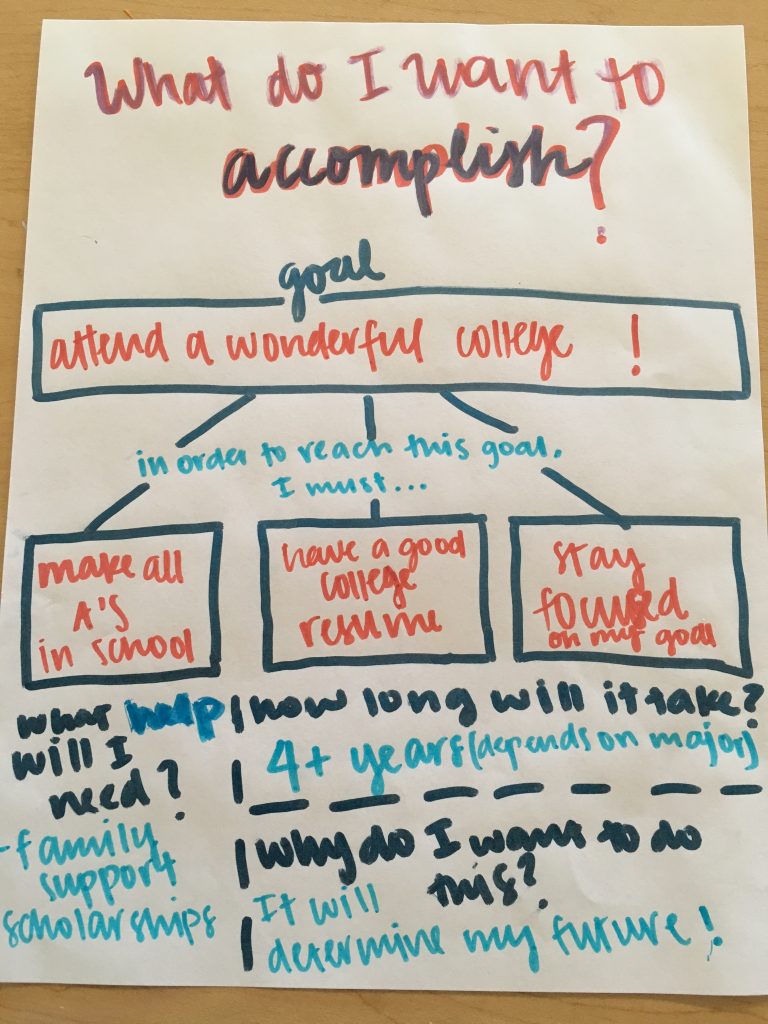 What do I want to
accomplish?
goal
attend a wonderful college !
in order to reach this goal.
I must...
make all
A's
in school
have a good
college
resume
stay
focused
on my goal
what help
will I
need?
-family
support
scholarships
how long will it take?
4+ years (depends on major)
Why do I want to do
this?
It will
determine my future!